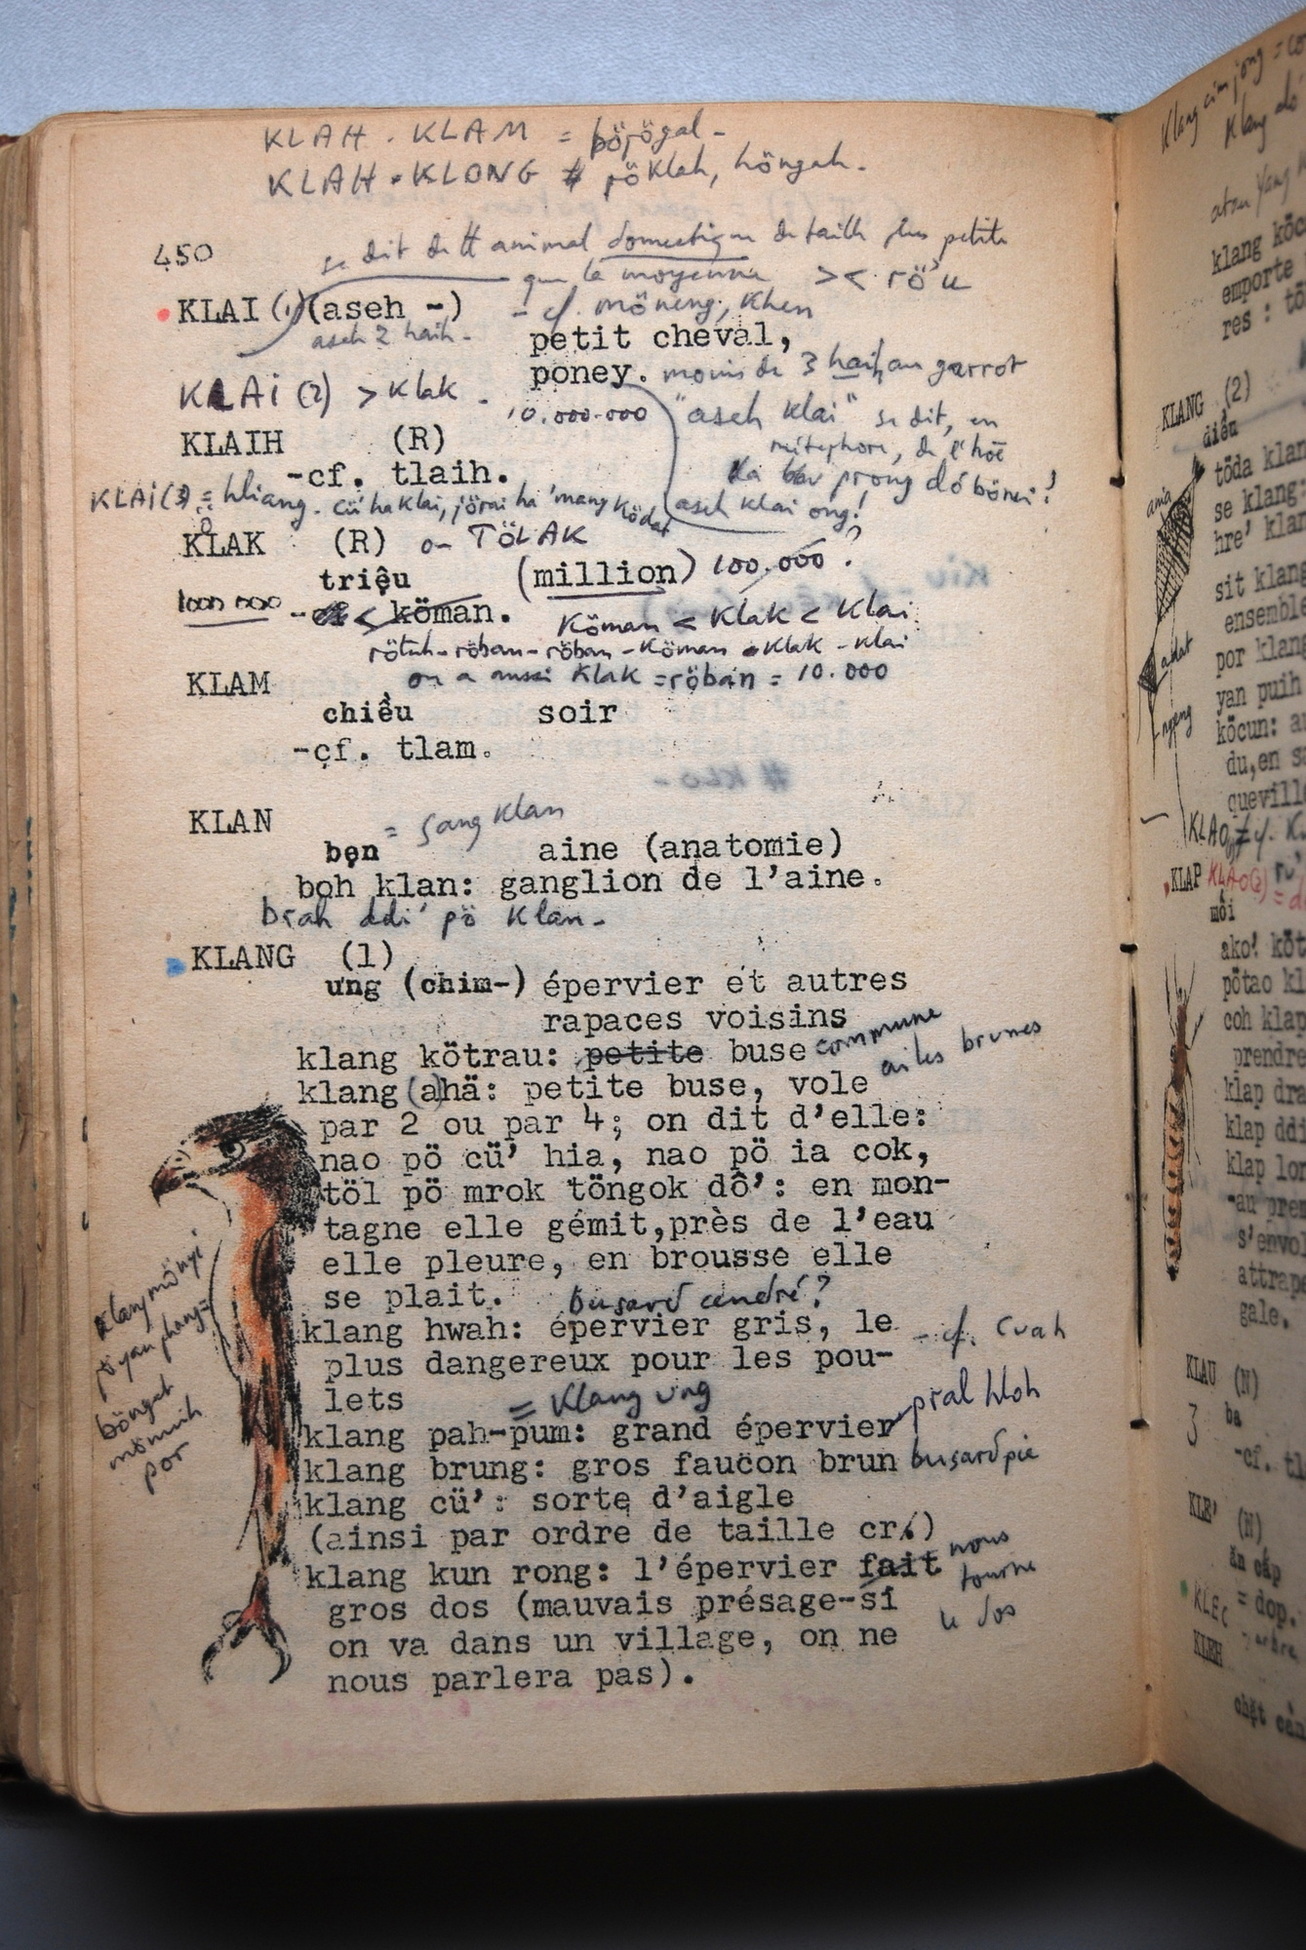 KLAH . KLAM = böjögal -
KLAH . KLONG ≠ pöklah, höngah.
450
se dit de tt animal domestique de taille plus petite
que la moyenne >< rö'u
• KLAI (1) (aseh -) - cf. möneng, khen
aseh 2 haih. petit cheval,
poney. moins de 3 haih au garrot
KLAI (2) > klak - 10.000.000 "aseh klai" se dit, en
KLAIH (R) métaphore, de
-cf. tlaih. prong
KLAI (3) = hliang. cü' ha klai, jörai ha 'mang ködat aseh klai ong!
KLAK (R) ou TÖLAK
triệu (million) 100.000 ?
1000 000 -cf < köman. Köman < klak < klai
rötuh - röban - röban - köman - klak - klai
KLAM on a aussi klak = röban = 10.000
chiều soir
-cf. tlam.
KLAN = sang klan
bẹn aine (anatomie)
boh klan: ganglion de l'aine.
brah ddi' pö klan -
KLANG (1)
ưng (chim-) épervier et autres
rapaces voisins
klang kötrau: petite buse commune
ailes brunes
klang (a)hä: petite buse, vole
par 2 ou par 4; on dit d'elle:
nao pö cü' hia, nao pö ia cok,
töl pö mrok töngok dô': en mon-
tagne elle gémit,près de l'eau
elle pleure, en brousse elle
se plait. busard cendré?
klang hwah: épervier gris, le - cf. cuah
plus dangereux pour les pou-
lets = klang ung
klang pah-pum: grand épervier pral hloh
klang brung: gros faucon brun busard pie
klang cü': sorte d'aigle
(ainsi par ordre de taille cr.)
klang kun rong: l'épervier fait nous tourne
gros dos (mauvais présage-si le dos
on va dans un village, on ne
nous parlera pas).
klang mönyi
yan phang =
böngat
mönuih
por
Klang cim jong =
klang
atau yang
klang köc
emporte
res : tö
KLANG (2)
diều
töda klan
se klang:
hre' klan
ania
sit klang
ensemble
por klang
adat
yan puih
ngeng
köcun: a
du,en s
queville
KLAO (1) ≠ cf.
• KLAP KLAO(2)
mối
ako' köt
pötao kl
coh klap
prendre
klap dra
klap ddi
klap lon
-au pren
s'envol
attrape
gale.
KLAU (N)
3 ba
-cf. tl
KLE' (N)
ăn cắp
KLEC = dop.
KLEH
chặt